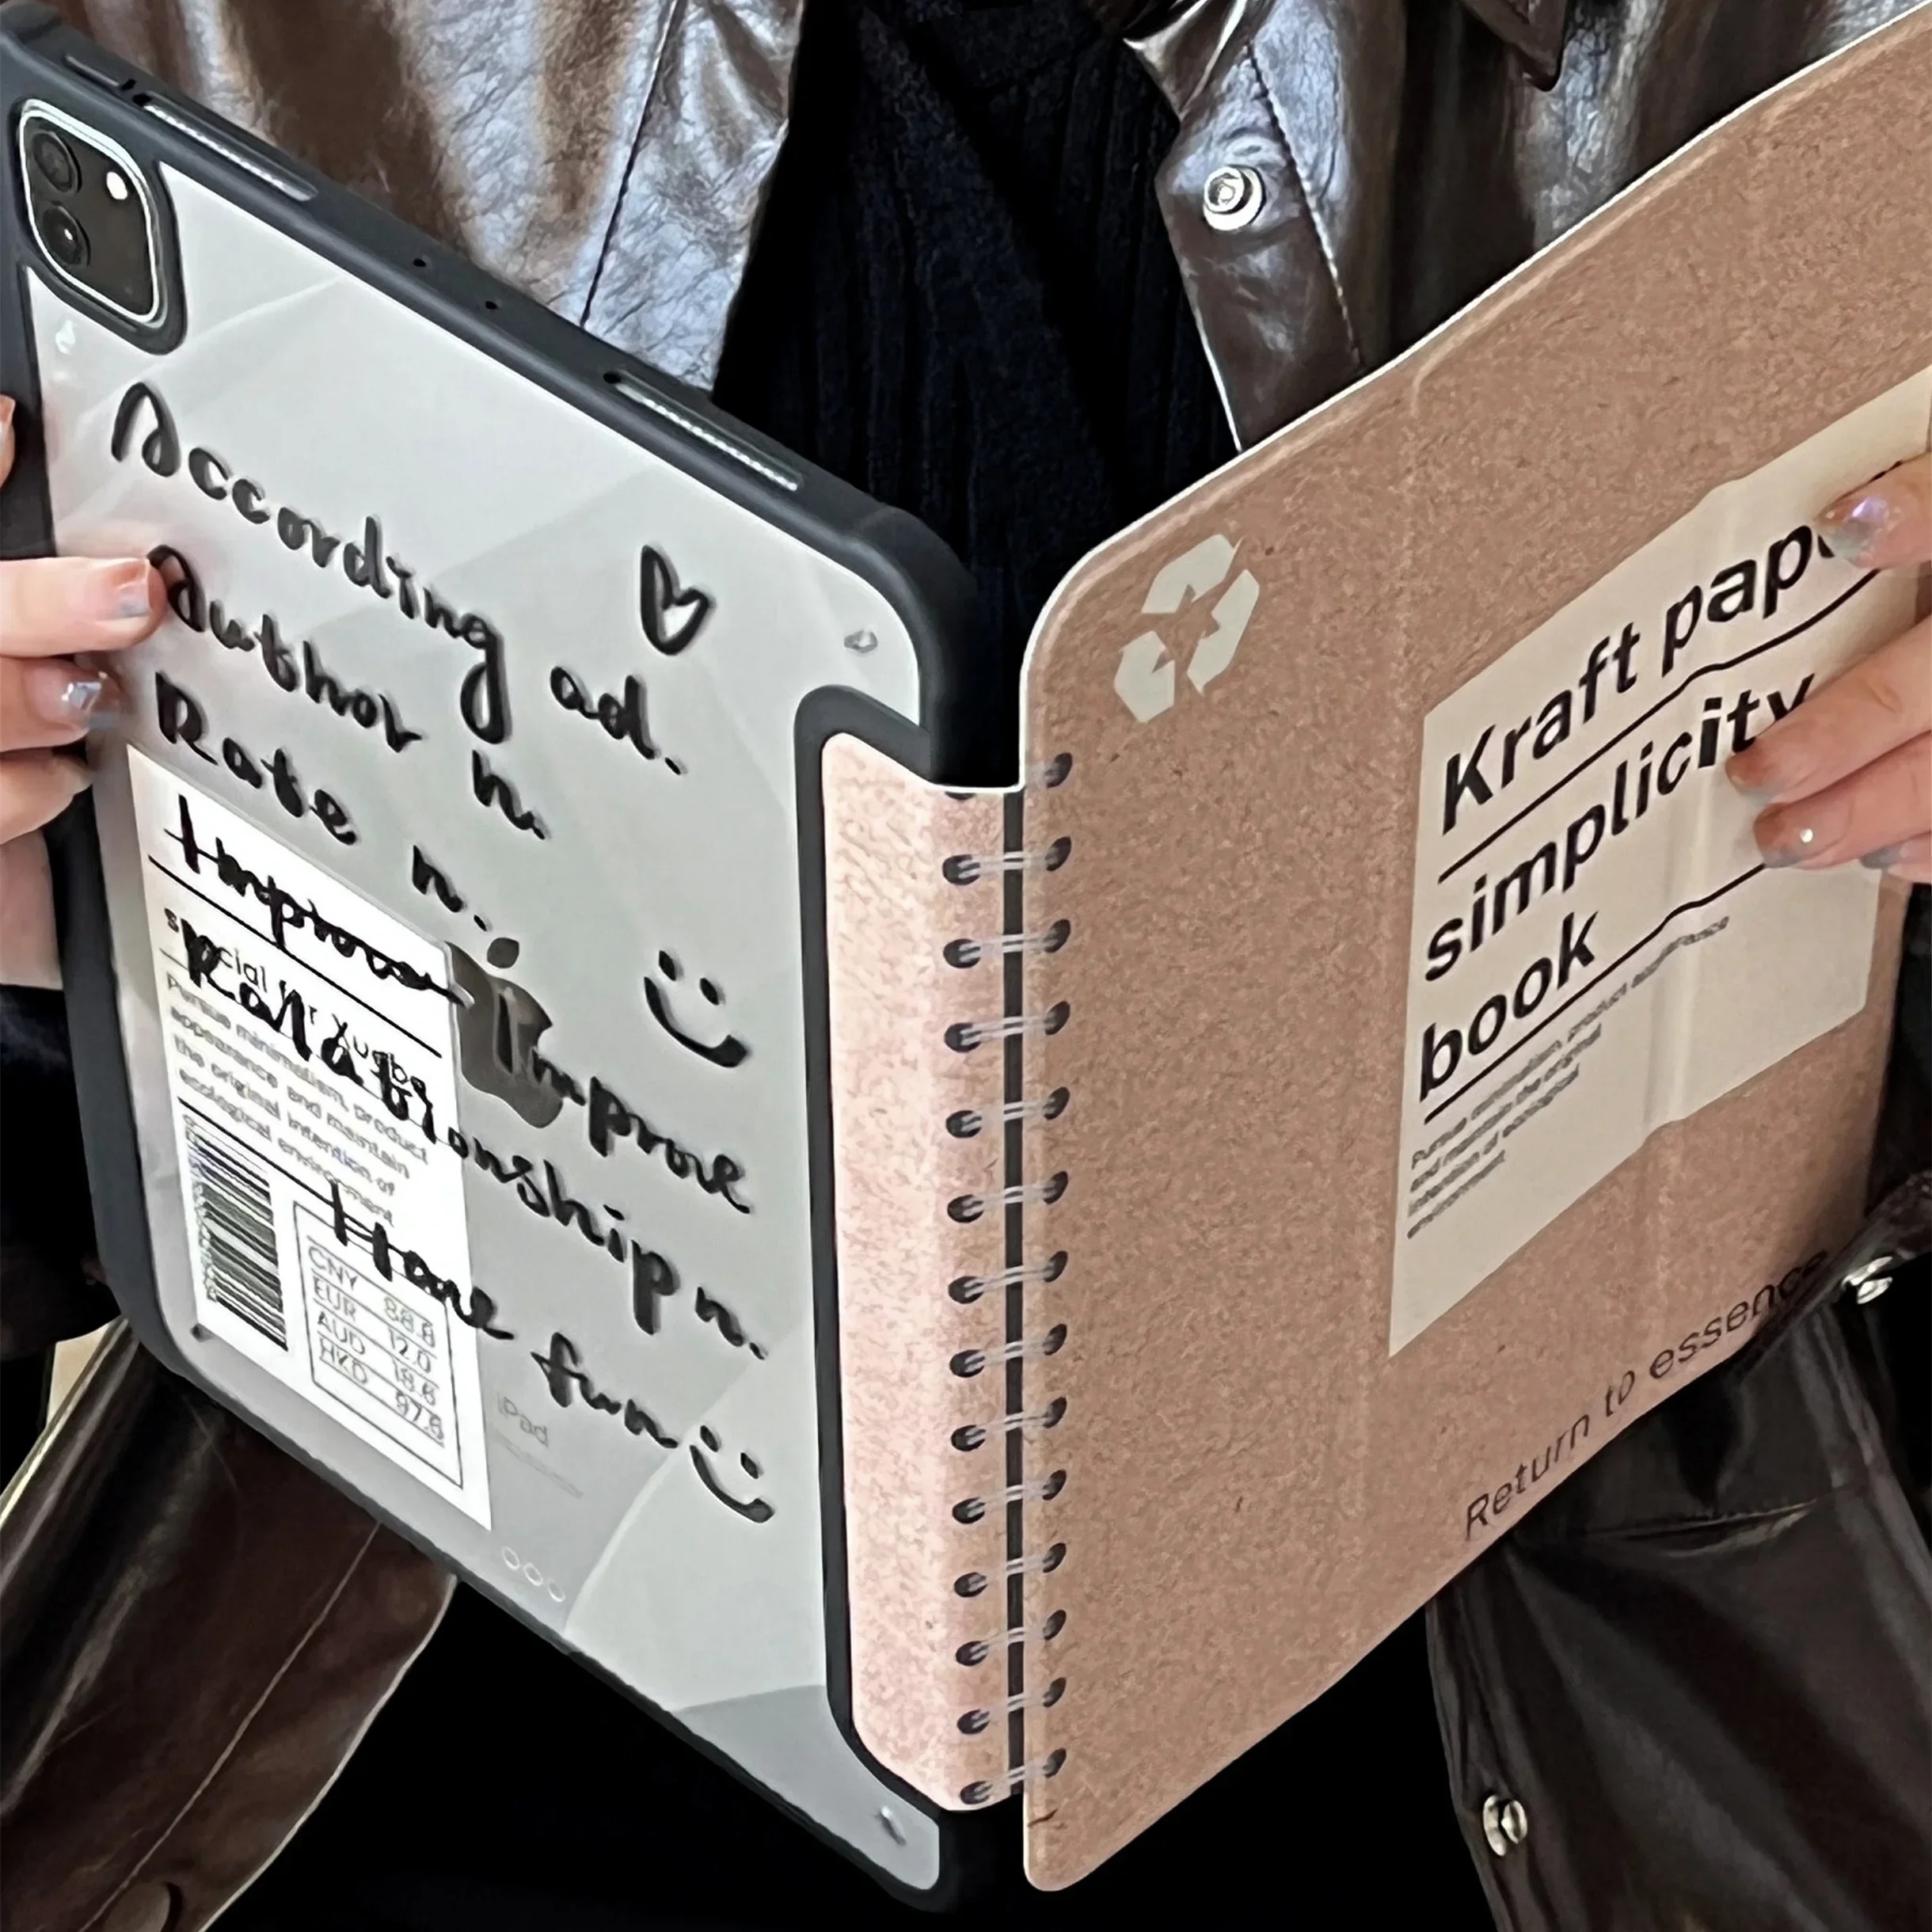 According ad.
Author n.
Rate n.
Improve
Improve
Relationship n.
Have fun
special for
Pursue minimalism, product
appearance and maintain
the original intention of
ecological environment
CNY 88.8
EUR 12.0
AUD 18.6
HKD 97.6
iPad
Kraft pape
simplicity
book
Pursue minimalism, product appearance
and maintain the original
intention of ecological
environment
Return to essence